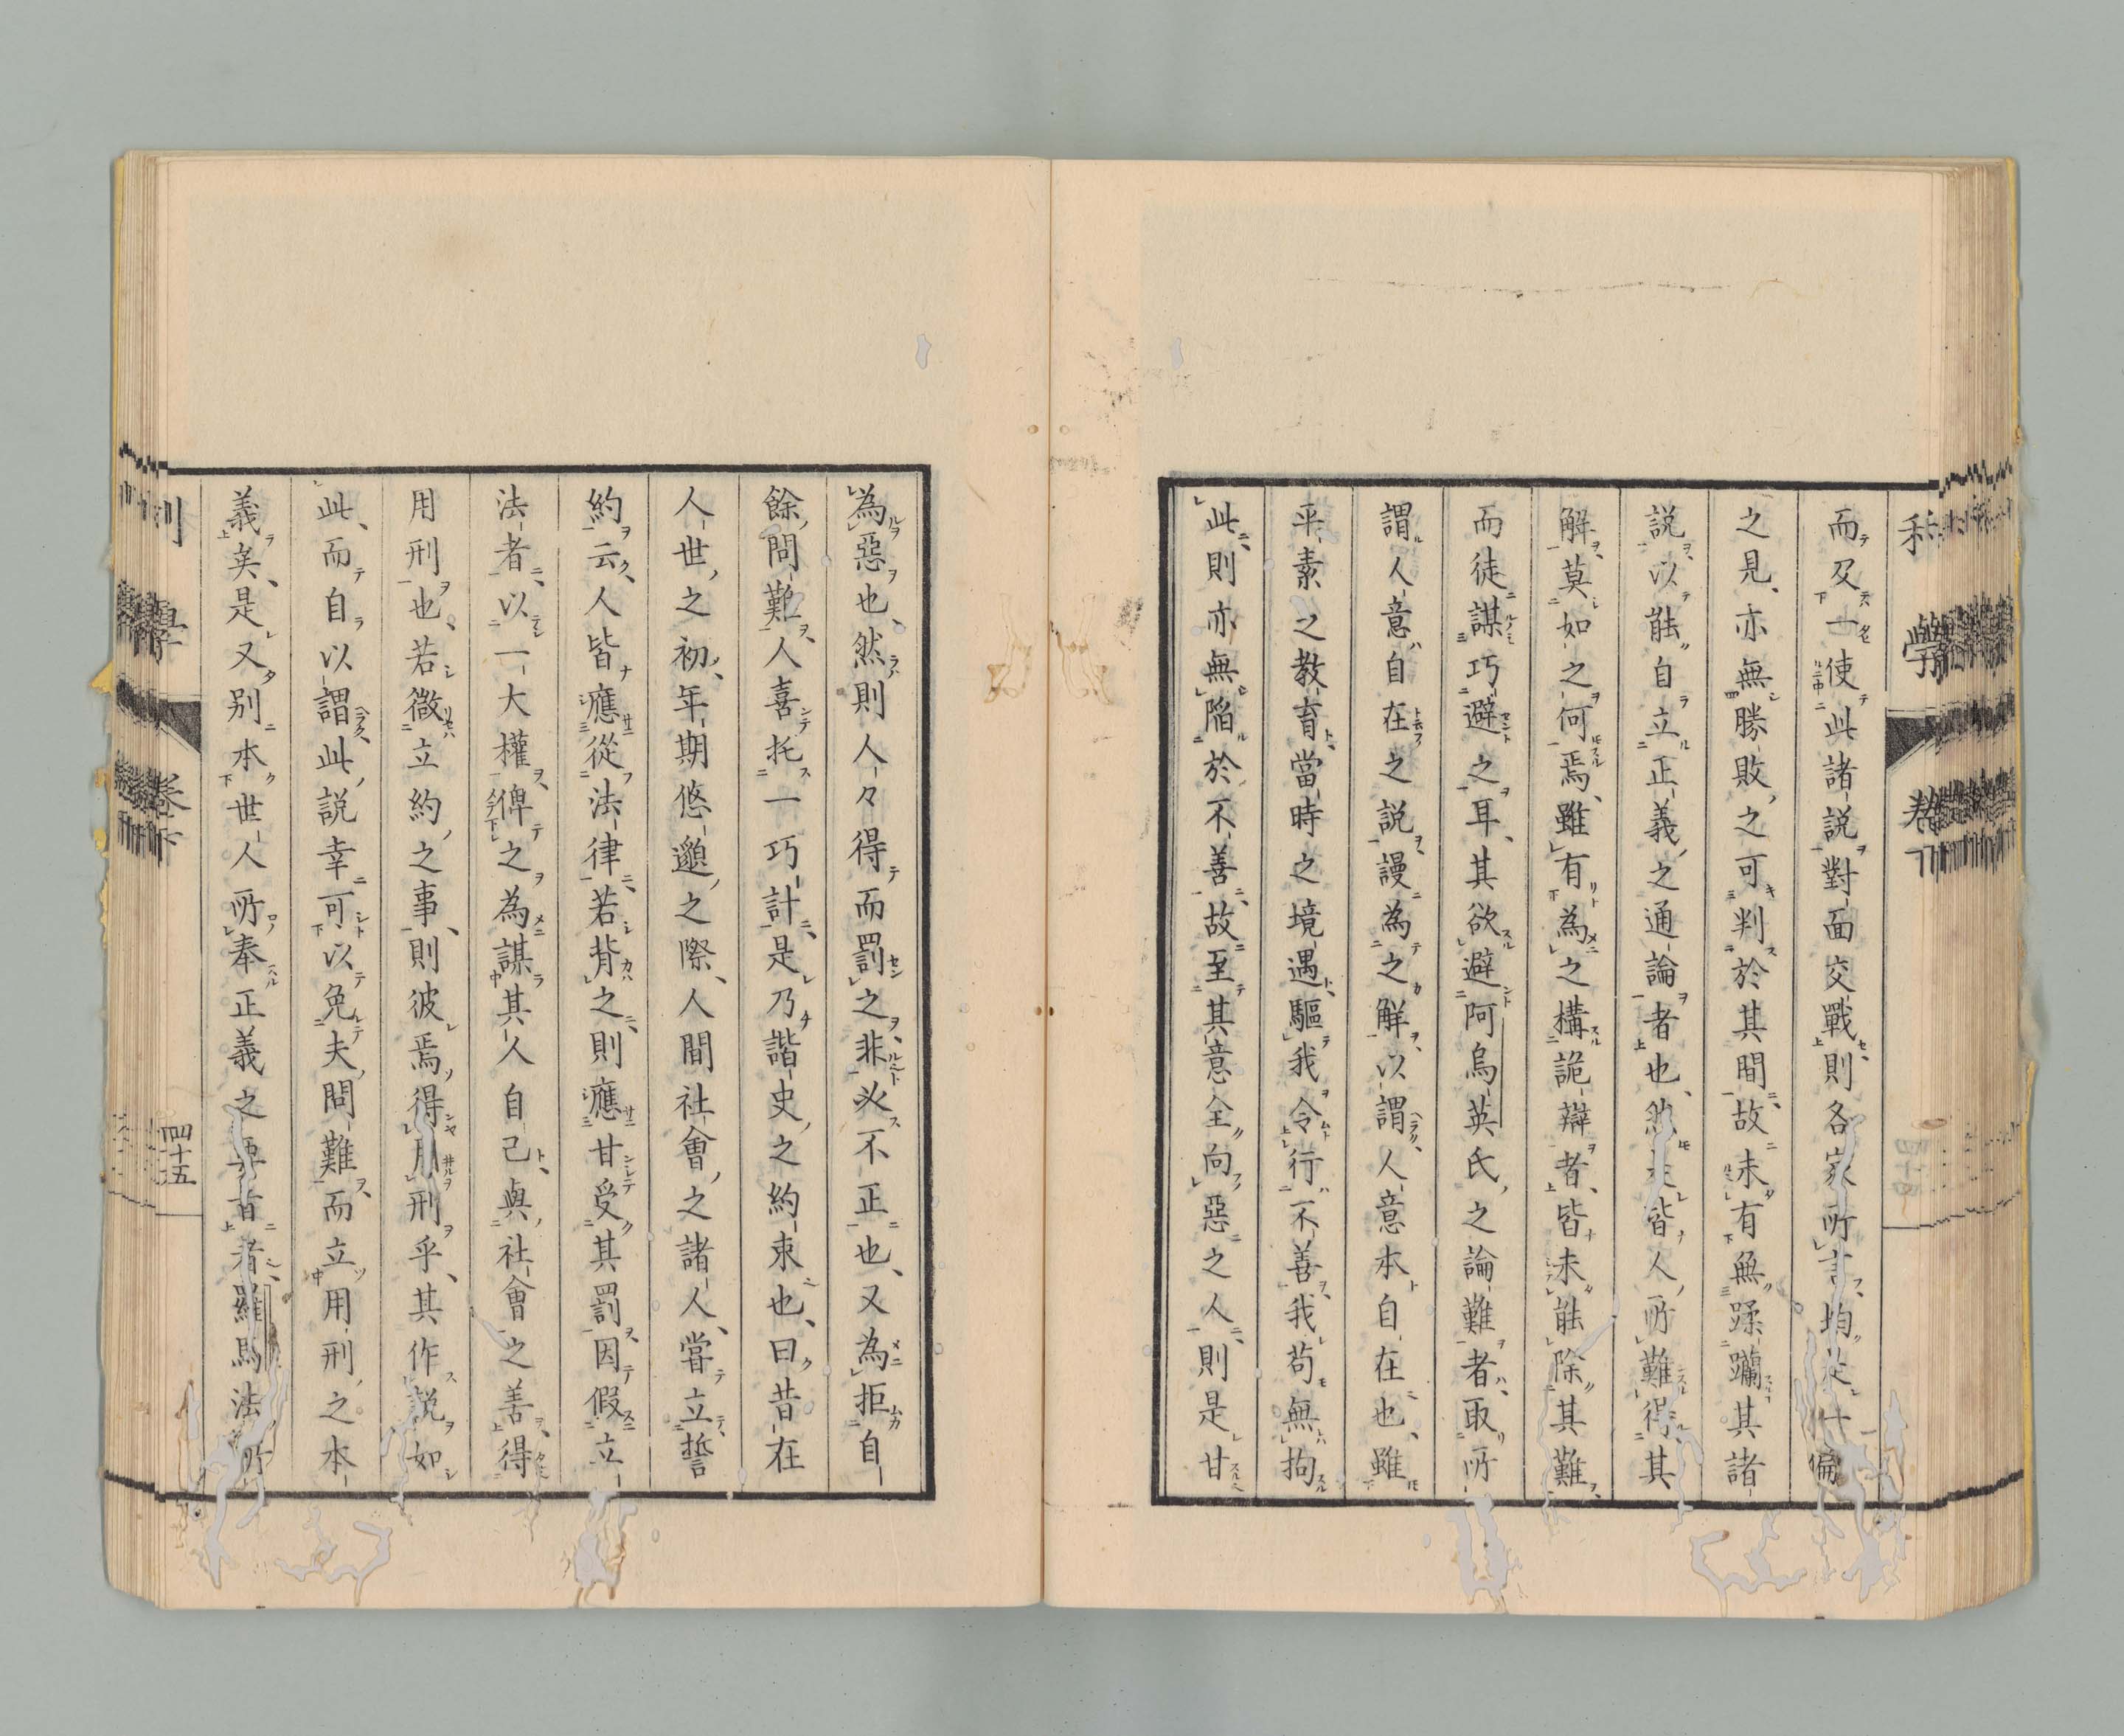 而及一使此諸説對面交戰則各家所言均是十偏
之見、亦無勝敗之可判於其間、故未有無蹂躪其諸
説、以能自立正義之通論者也、然是皆人所難得其
解、莫如之何焉、雖有為之構詭辯者、皆未能除其難、
而徒謀巧避之耳、其欲避阿烏英氏之論難者、取所
謂人意自在之説、謾為之解、以謂人意本自在也、雖
平素之教育、當時之境遇、驅我令行不善、我苟無拘
此、則亦無陷於不善、故至其意全向惡之人、則是甘
為惡也、然則人々得而罰之、非必不正也、又為拒自
餘問難、人喜托一巧計、是乃諧史之約束也、曰昔在
人世之初、年期悠邈之際、人間社會之諸人、嘗立誓
約云、人皆應從法律、若背之、則應甘受其罰、因假立
法者、以一大權、俾之為謀其人自己與社會之善、得
用刑也、若微立約之事、則彼焉得用刑乎、其作説如
此、而自以謂此説幸可以免夫問難、而立用刑之本
義矣、是又別本世人所奉正義之要旨者、羅馬法所
四十五